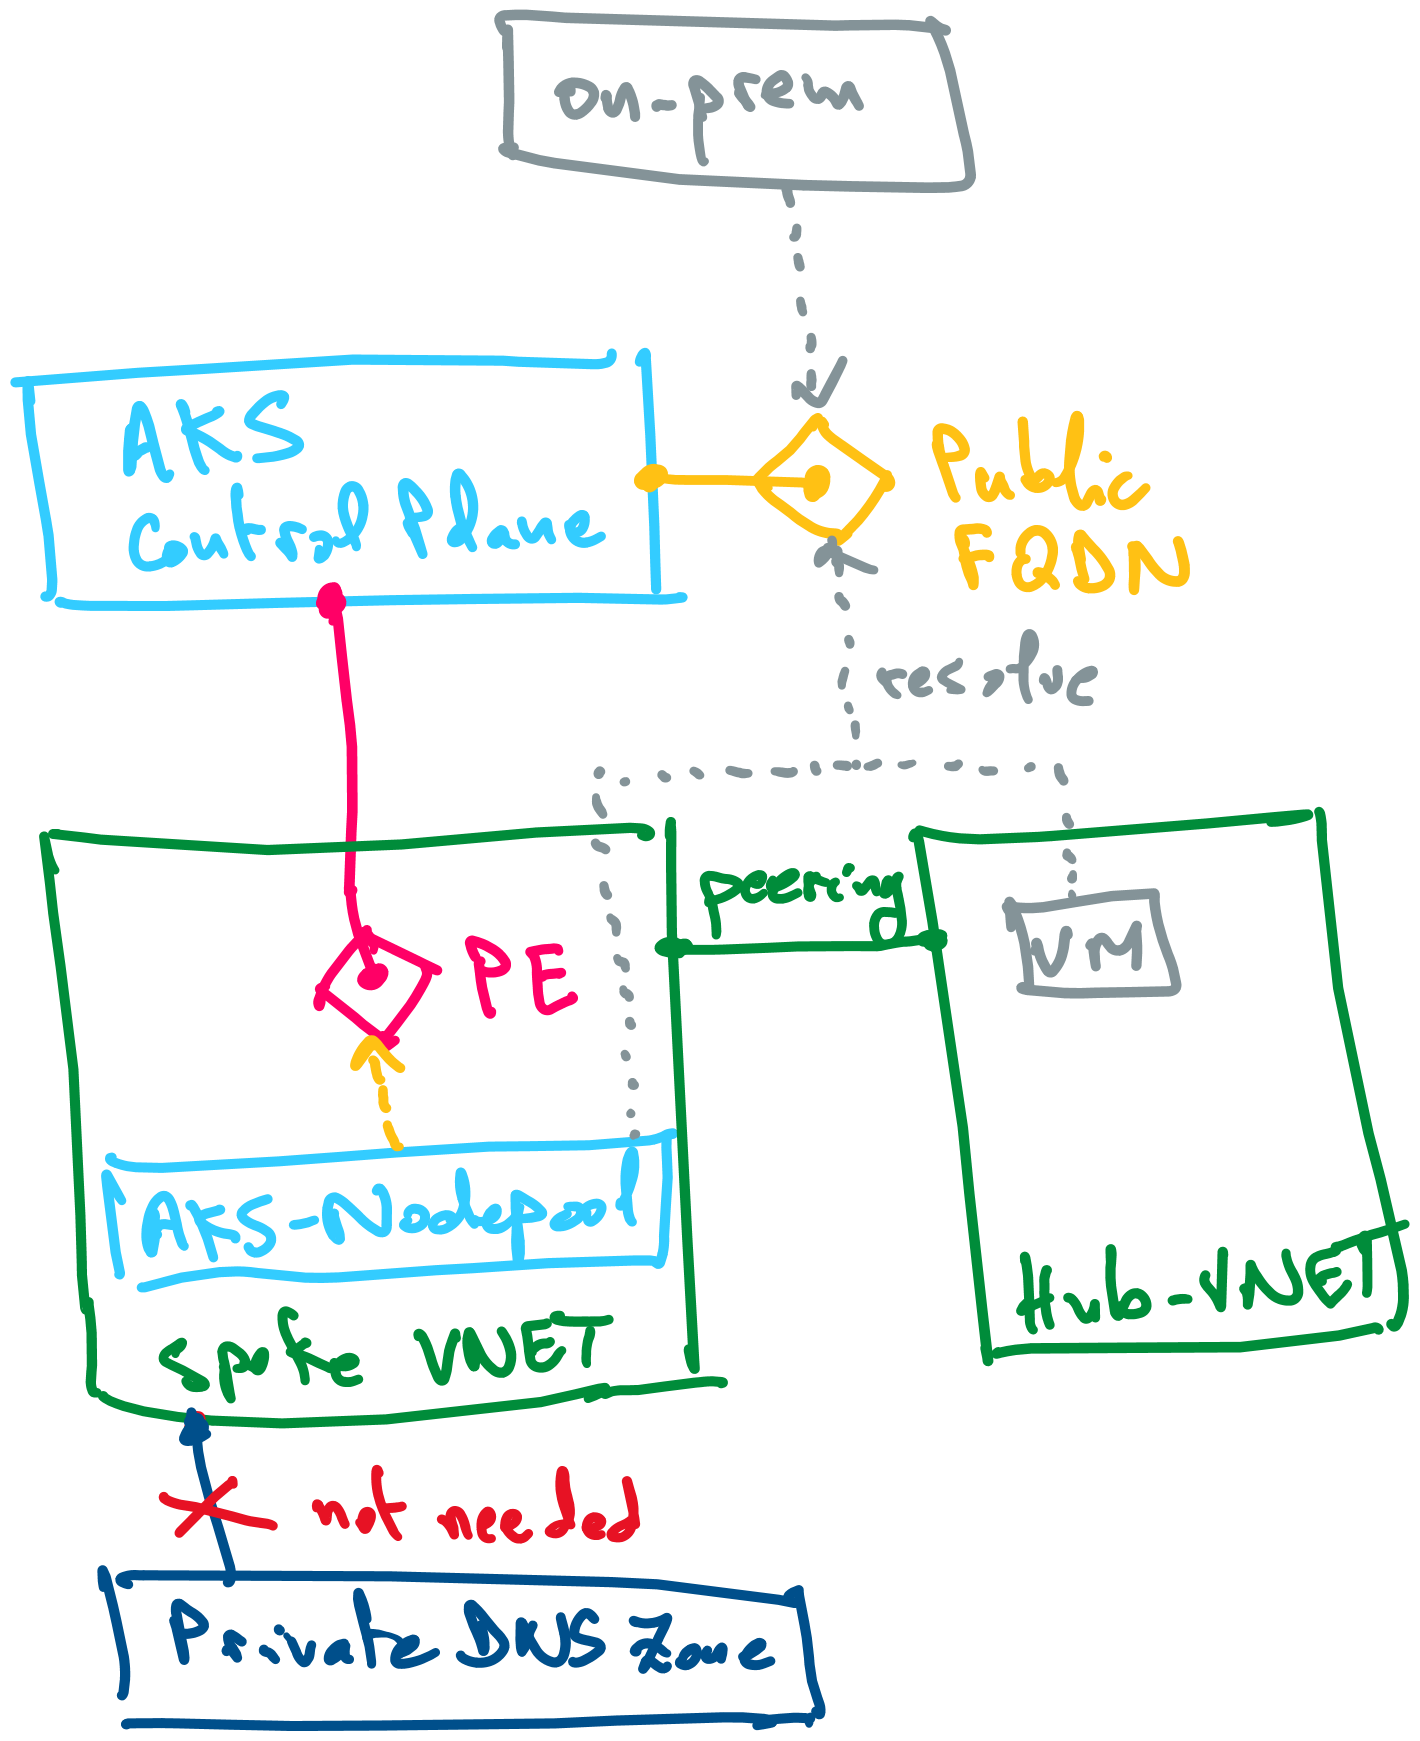 on-prem
AKS
Control Plane
Public
FQDN
resolve
peering
VM
PE
AKS-Nodepool
Hub-VNET
spoke VNET
not needed
Private DNS Zone